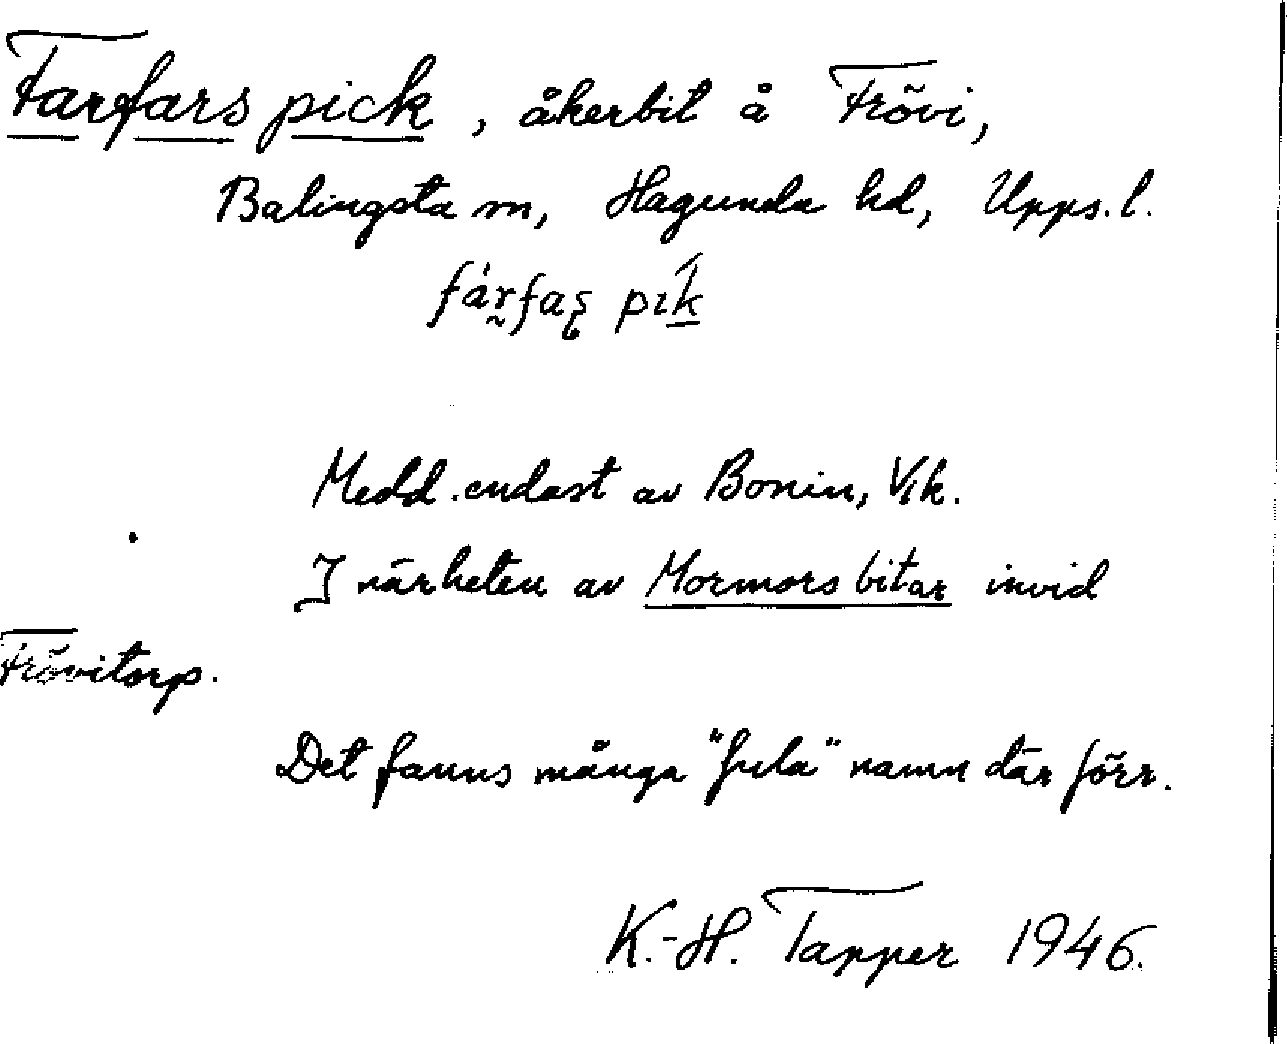 Farfars pick, åkerbit å Frövi,
Balingsta sn, Hagunda hd, Upps. l.
fárfaș pík
Medd. endast av Bonin, Vik.
I närheten av Mormors bitar invid
Frövitorp.
Det fanns många "fula" namn där förr.
K.-H. Tapper 1946.